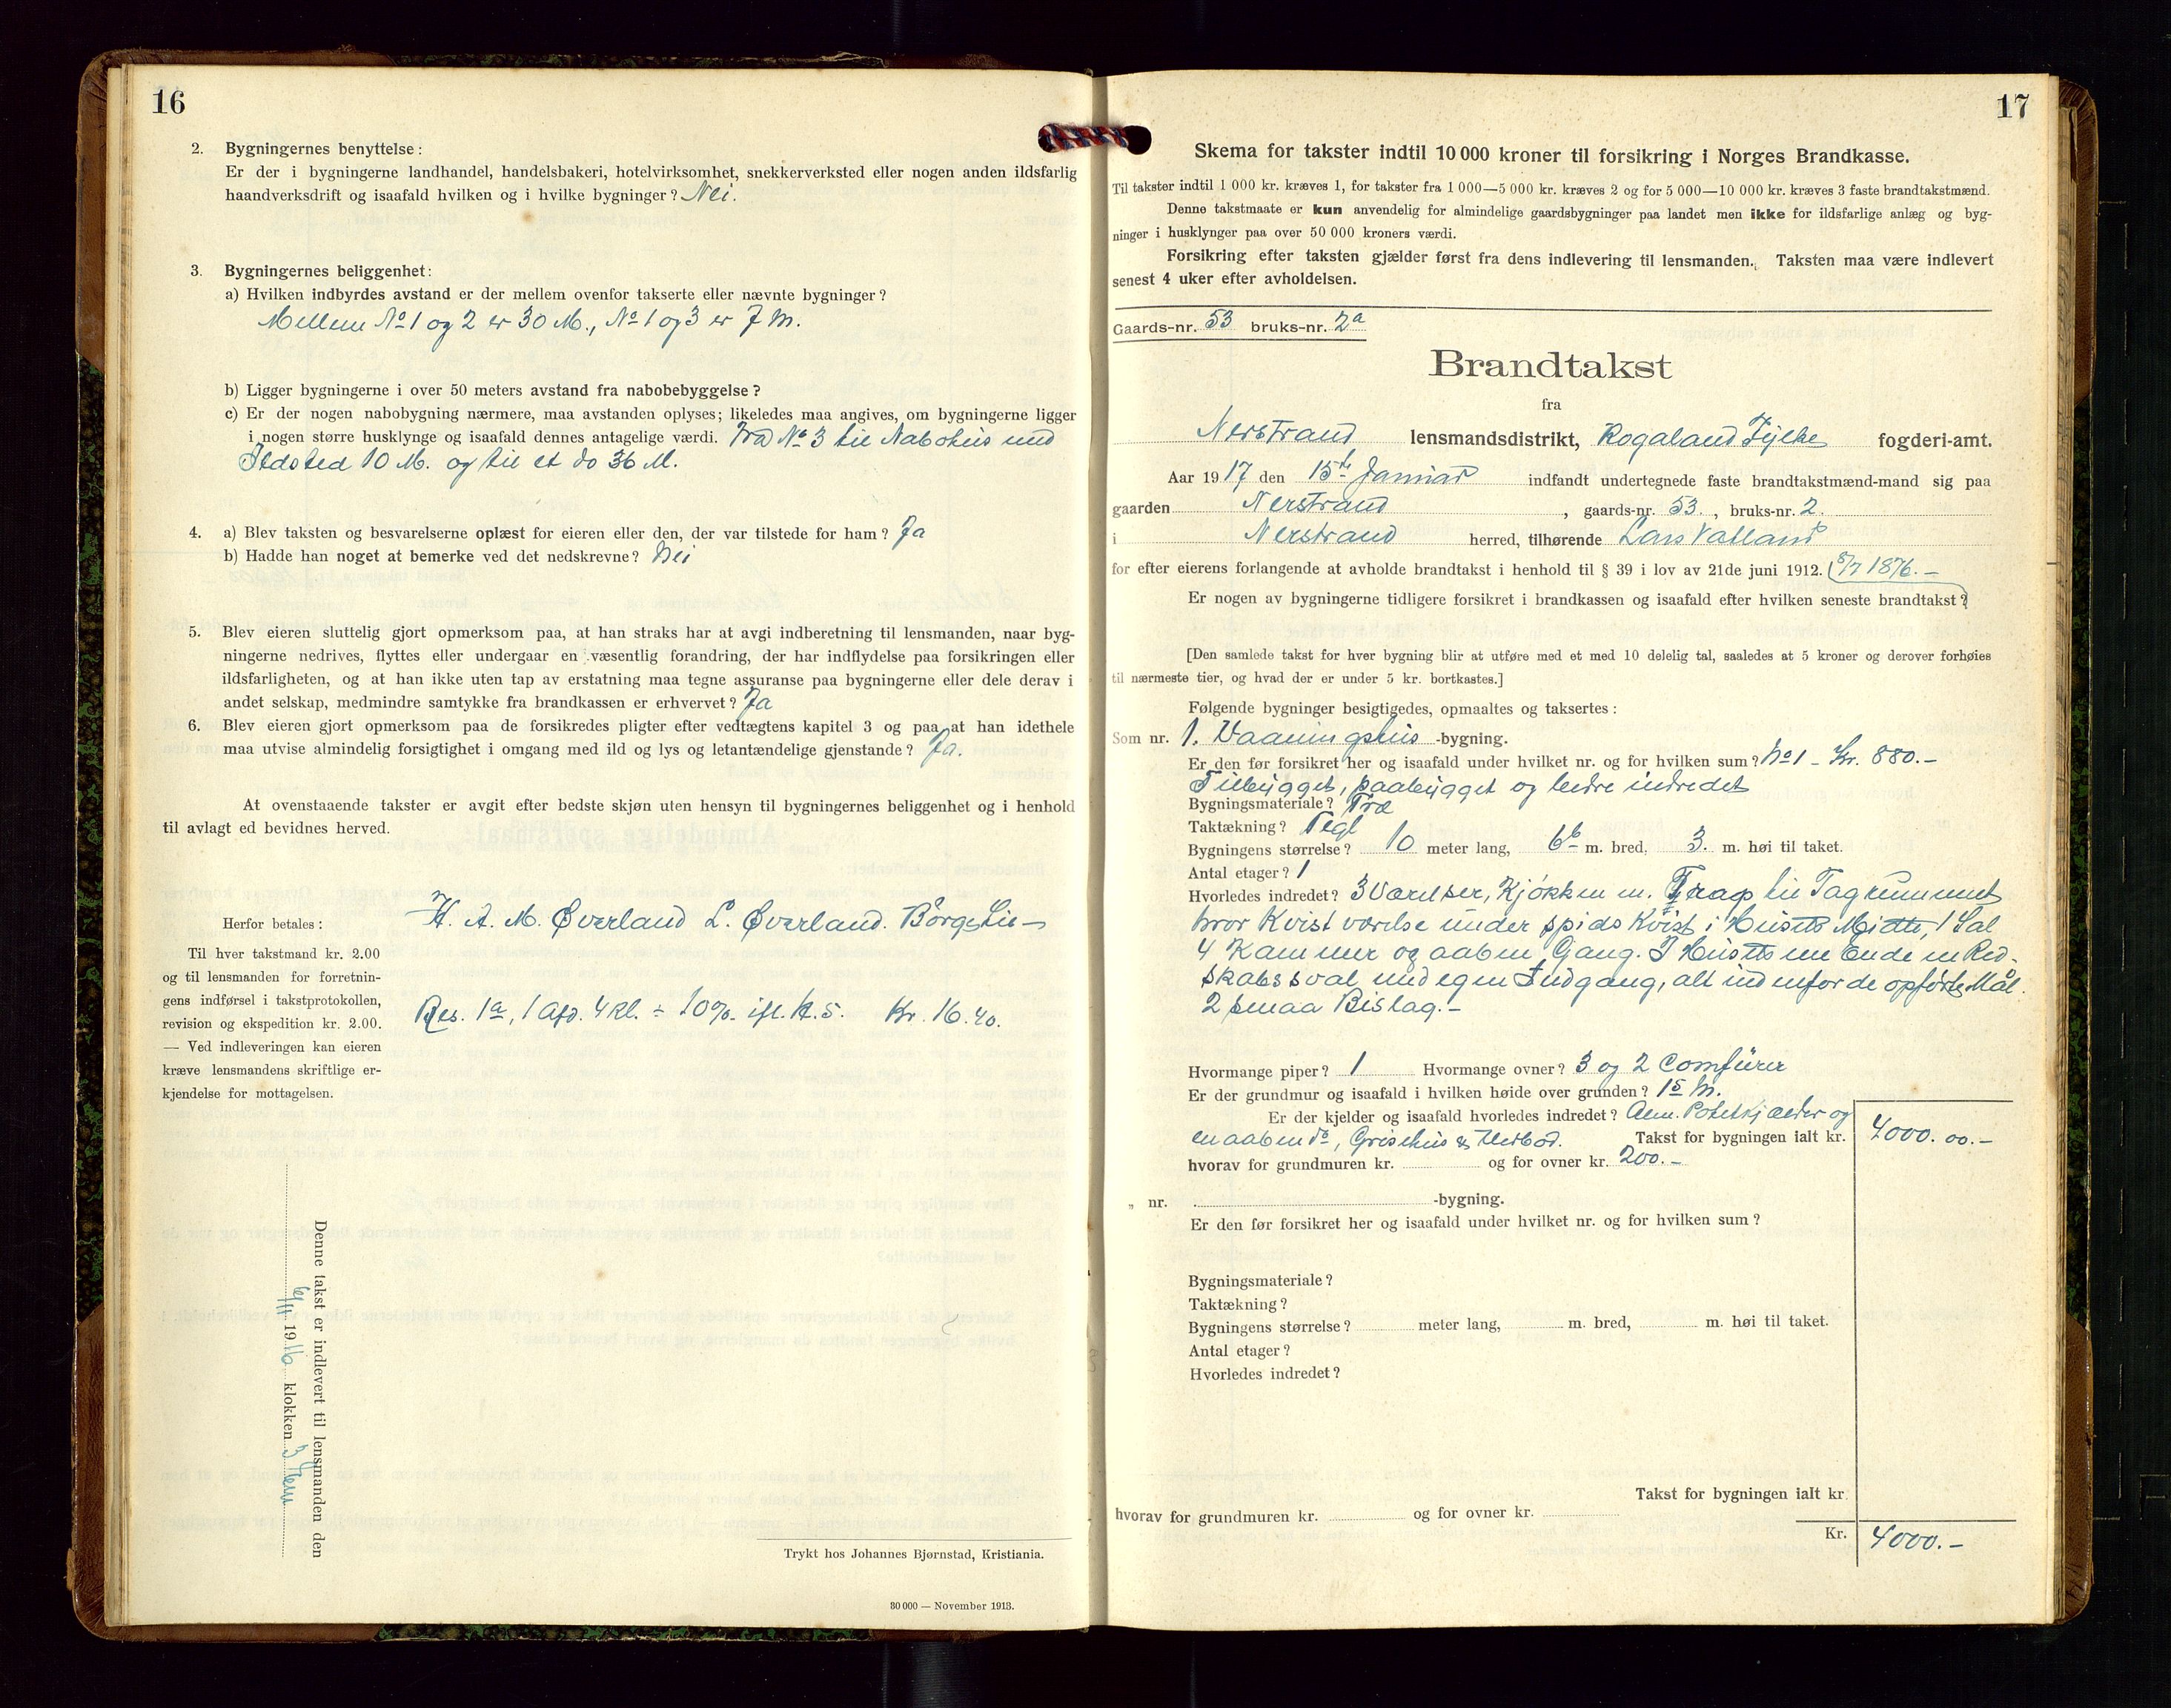 16
2. Bygningernes benyttelse:
Er der i bygningerne landhandel, handelsbakeri, hotelvirksomhet, snekkerverksted eller nogen anden ildsfarlig
haandverksdrift og isaafald hvilken og i hvilke bygninger? Nei.
3. Bygningernes beliggenhet:
a) Hvilken indbyrdes avstand er der mellem ovenfor takserte eller nævnte bygninger?
Mellem No 1 og 2 er 30 M., No 1 og 3 er 7 m.
b) Ligger bygningerne i over 50 meters avstand fra nabobebyggelse?
c) Er der nogen nabobygning nærmere, maa avstanden oplyses; likeledes maa angives, om bygningerne ligger
i nogen større husklynge og isaafald dennes antagelige værdi. Fra No 3 til Nabohus med
Ildsted 10 M. og til et do 36 M.
4. a) Blev taksten og besvarelserne oplæst for eieren eller den, der var tilstede for ham? Ja
b) Hadde han noget at bemerke ved det nedskrevne? Nei
5. Blev eieren sluttelig gjort opmerksom paa, at han straks har at avgi indberetning til lensmanden, naar byg-
ningerne nedrives, flyttes eller undergaar en væsentlig forandring, der har indflydelse paa forsikringen eller
ildsfarligheten, og at han ikke uten tap av erstatning maa tegne assuranse paa bygningerne eller dele derav i
andet selskap, medmindre samtykke fra brandkassen er erhvervet? Ja
6. Blev eieren gjort opmerksom paa de forsikredes pligter efter vedtægtens kapitel 3 og paa at han idethele
maa utvise almindelig forsigtighet i omgang med ild og lys og letantændelige gjenstande? Ja.
At ovenstaaende takster er avgit efter bedste skjøn uten hensyn til bygningernes beliggenhet og i henhold
til avlagt ed bevidnes herved.
H. A. M. Øverland L. Øverland. Børge Lie
Herfor betales:
Til hver takstmand kr. 2.00
og til lensmanden for forretnin-
gens indførsel i takstprotokollen,
revision og ekspedition kr. 2.00.
— Ved indleveringen kan eieren
kræve lensmandens skriftlige er-
kjendelse for mottagelsen.
Res. 1a, 1 afd. 4 kl. ÷ 10%. ifl. k. 5. Kr. 16.40.
Denne takst er indlevert til lensmanden den
6/11 1916 klokken 3 Em
Trykt hos Johannes Bjørnstad, Kristiania.
30 000 — November 1913.
17
Skema for takster indtil 10 000 kroner til forsikring i Norges Brandkasse.
Til takster indtil 1 000 kr. kræves 1, for takster fra 1 000—5 000 kr. kræves 2 og for 5 000—10 000 kr. kræves 3 faste brandtakstmænd.
Denne takstmaate er kun anvendelig for almindelige gaardsbygninger paa landet men ikke for ildsfarlige anlæg og byg-
ninger i husklynger paa over 50 000 kroners værdi.
Forsikring efter taksten gjælder først fra dens indlevering til lensmanden. Taksten maa være indlevert
senest 4 uker efter avholdelsen.
Gaards-nr. 53 bruks-nr. 2a
Brandtakst
fra
Nerstrand lensmandsdistrikt, Rogaland Fylke fogderi-amt.
Aar 1917 den 15de Januar indfandt undertegnede faste brandtakstmænd-mand sig paa
gaarden Nerstrand, gaards-nr. 53., bruks-nr. 2.
i Nerstrand herred, tilhørende Lars Vatland
for efter eierens forlangende at avholde brandtakst i henhold til § 39 i lov av 21de juni 1912. 8/7 1876.—
Er nogen av bygningerne tidligere forsikret i brandkassen og isaafald efter hvilken seneste brandtakst?
[Den samlede takst for hver bygning blir at utføre med et med 10 delelig tal, saaledes at 5 kroner og derover forhøies
til nærmeste tier, og hvad der er under 5 kr. bortkastes.]
Følgende bygninger besigtigedes, opmaaltes og taksertes:
Som nr. 1. Vaaningshus -bygning.
Er den før forsikret her og isaafald under hvilket nr. og for hvilken sum? No 1 – Kr. 880.–
Tilbygget, paabygget og bedre indredet
Bygningsmateriale? Træ
Taktækning? Tegl
Bygningens størrelse? 10 meter lang, 6 6 m. bred, 3. m. høi til taket.
Antal etager? 1
Hvorledes indredet? 3 Værelser, Kjøkken m. Trap til Tagrummet
hvor Kvistværelse under spids Kvist i Husets Midte, 1 Sal
4 Kammer og aaben Gang. I Husets ene Ende en Red-
skabssval med egen Indgang, alt indenfor de opførte Mål.
2 smaa Bislag.–
Hvormange piper? 1 Hvormange ovner? 3 og 2 Comfurer
Er der grundmur og isaafald i hvilken høide over grunden? 1 5 m.
Er der kjelder og isaafald hvorledes indredet? Alm. Potetkjælder og
en aaben do, Grisehus & Vedbod. Takst for bygningen ialt kr. 4000.00.–
hvorav for grundmuren kr. og for ovner kr. 200.–
„ nr. -bygning.
Er den før forsikret her og isaafald under hvilket nr. og for hvilken sum?
Bygningsmateriale?
Taktækning?
Bygningens størrelse? meter lang, m. bred, m. høi til taket.
Antal etager?
Hvorledes indredet?
Takst for bygningen ialt kr.
hvorav for grundmuren kr. og for ovner kr.
Kr. 4000.–